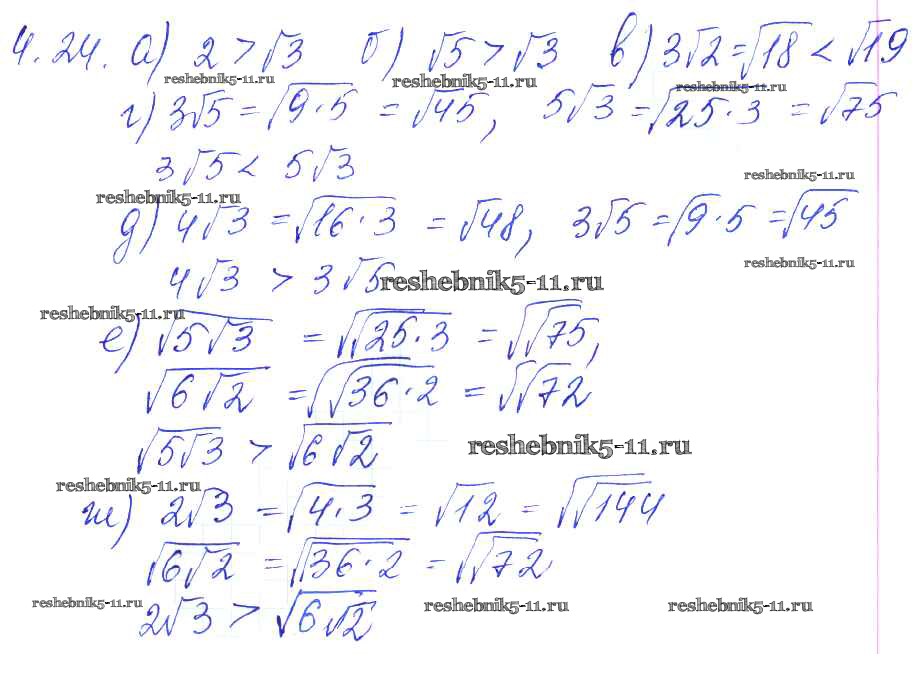 4.24. а) 2 > √3 б) √5 > √3 в) 3√2 = √18 < √19
reshebnik5-11.ru reshebnik5-11.ru reshebnik5-11.ru
г) 3√5 = √(9·5) = √45, 5√3 = √(25·3) = √75
3√5 < 5√3
reshebnik5-11.ru
reshebnik5-11.ru
д) 4√3 = √(16·3) = √48, 3√5 = √9·5 = √45
reshebnik5-11.ru
4√3 > 3√5
reshebnik5-11.ru
reshebnik5-11.ru
е) √(5√3) = √√(25·3) = √√75,
√(6√2) = √√(36·2) = √√72
√(5√3) > √(6√2)
reshebnik5-11.ru
reshebnik5-11.ru
ж) 2√3 = √(4·3) = √12 = √√144
√(6√2) = √√(36·2) = √√72
2√3 > √(6√2)
reshebnik5-11.ru reshebnik5-11.ru reshebnik5-11.ru